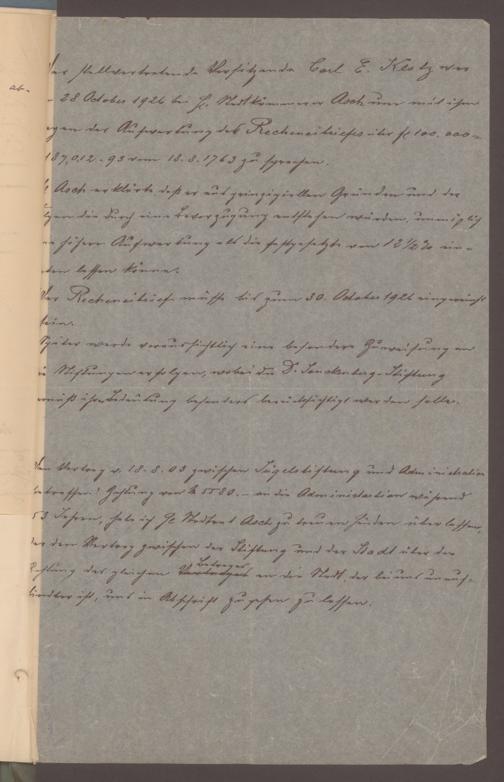 ab-
Der stellvertretende Vorsitzende Carl E. Klotz war
28 October 1926 bei H. Stadtkämmerer Asch um mit ihm
wegen der Aufwertung des Recheneibriefes über fl 100.000=
187,012.95 vom 18.8.1763 zu sprechen.
Asch erklärte daß er aus prinzipiellen Gründen und der
die durch eine Bevorzugung entstehen würden, unmöglich
höhere Aufwertung als die festgesetzte von 12 1/2% ein-
lassen könne.
Der Recheneibrief müßte bis zum 30. October 1926 eingereicht
sein.
Später werde voraussichtlich eine besondere Zuweisung an
Stiftungen erfolgen, wobei die D. Senckenberg. Stiftung
ihrer Bedeutung besonders berücksichtigt werden solle.
Den Vertrag v. 18.8.03 zwischen Jügelstiftung und Administration
betreffend Zahlung von M 5580.- an die Administration während
53 Jahren, habe ich H. Stadtrat Asch zu treuen Händen überlassen,
der den Vertrag zwischen der Stiftung und der Stadt über die
Zahlung des gleichen Betrages an die Stadt, der bei uns unauf-
findbar ist, uns in Abschrift zugehen zu lassen.